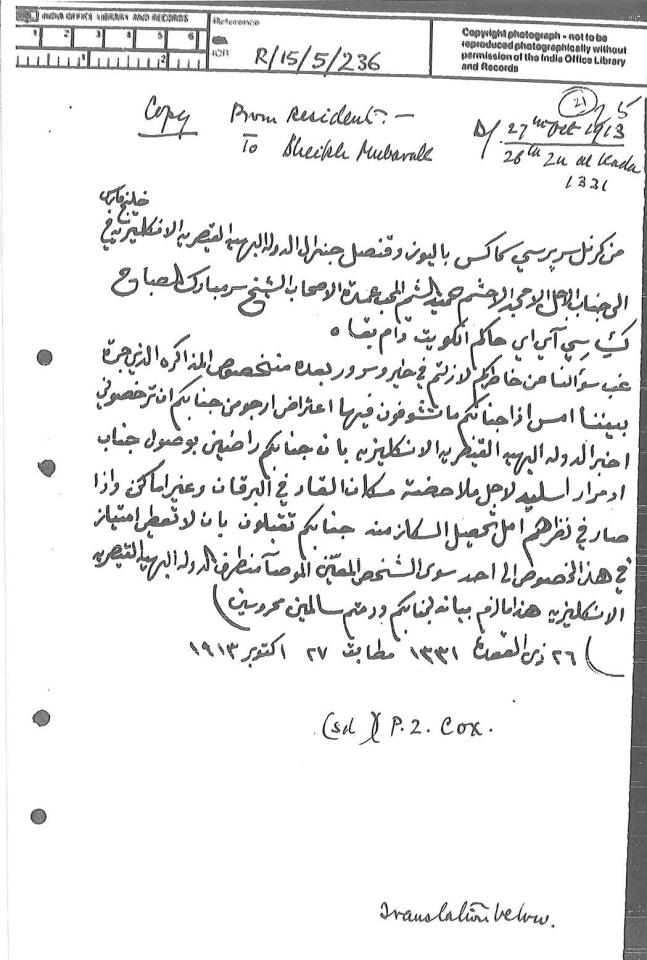 INDIA OFFICE LIBRARY AND RECORDS
1 2 3 4 5 6
1 2
Reference
IOR
R/15/5/236
Copyright photograph - not to be
reproduced photographically without
permission of the India Office Library
and Records
21
5
Copy From Resident:-
To Sheikh Mubarak
D/ 27th Oct 1913
26th Zu al Kada
1331
خليج فارس
من كرنل سر پرسي كاكس باليوز وقنصل جنرال الدولة البهية القيصريه الانكليزيه في
الى جناب الاجل الامجد الافخم حميد الشيم المحب عمدة الاصحاب الشيخ سر مبارك الصباح
كي سي آي اي حاكم الكويت دام بقاه
غب سؤالنا عن خاطركم لازلتم في خير وسرور بعده من خصوص المذاكره الذي جرة
بيننا امس اذا جنابكم ما تشوفون فيها اعتراض ارجو من جنابكم ان ترخصوني
اخبر الدوله البهيه القيصريه الانكليزيه بان جنابكم راضين بوصول جناب
ادمرال اسليد لاجل ملاحضة مكان القار في البرقان وغير اماكن واذا
صار في نظرهم امل تحصيل السكاز منه جنابكم تقبلون بان لا تعطي امتياز
في هذا الخصوص الى احد سوى الشخص المعيّن الموصا من طرف الدوله البهيه القيصريه
الانكليزيه هذا مالزم بيانه لجنابكم ودمتم سالمين محروسين
٢٦ ذي القعدة ١٣٣١ مطابق ٢٧ اكتوبر ١٩١٣
(sd) P. Z. Cox.
Translation below.